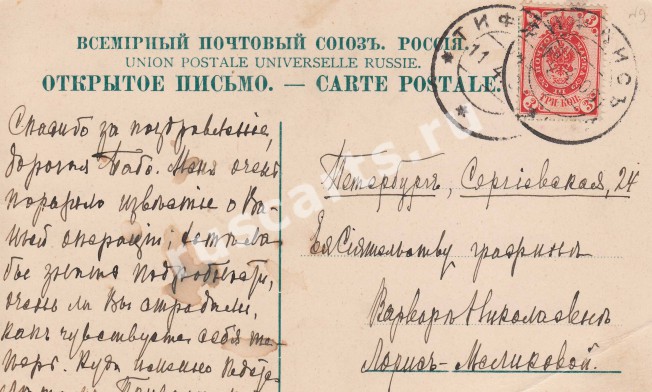 ВСЕМІРНЫЙ ПОЧТОВЫЙ СОЮЗЪ. РОССІЯ.
UNION POSTALE UNIVERSELLE RUSSIE.
ОТКРЫТОЕ ПИСЬМО. — CARTE POSTALE.
ТИФЛИСЪ
11
3
3
ТРИ КОП.
3
Спасибо за поздравленіе,
дорогая Меня очень
поразило извѣстіе о Ва-
шей операціи, хотѣла
бы знать подробности,
очень ли Вы страдали,
какъ чувствуете себя те-
перь. Куда именно
Петербургъ, Сергіевская, 24
Ея Сіятельству графинѣ
Варварѣ Николаевнѣ
Лорисъ-Меликовой.
ruscarts.ru